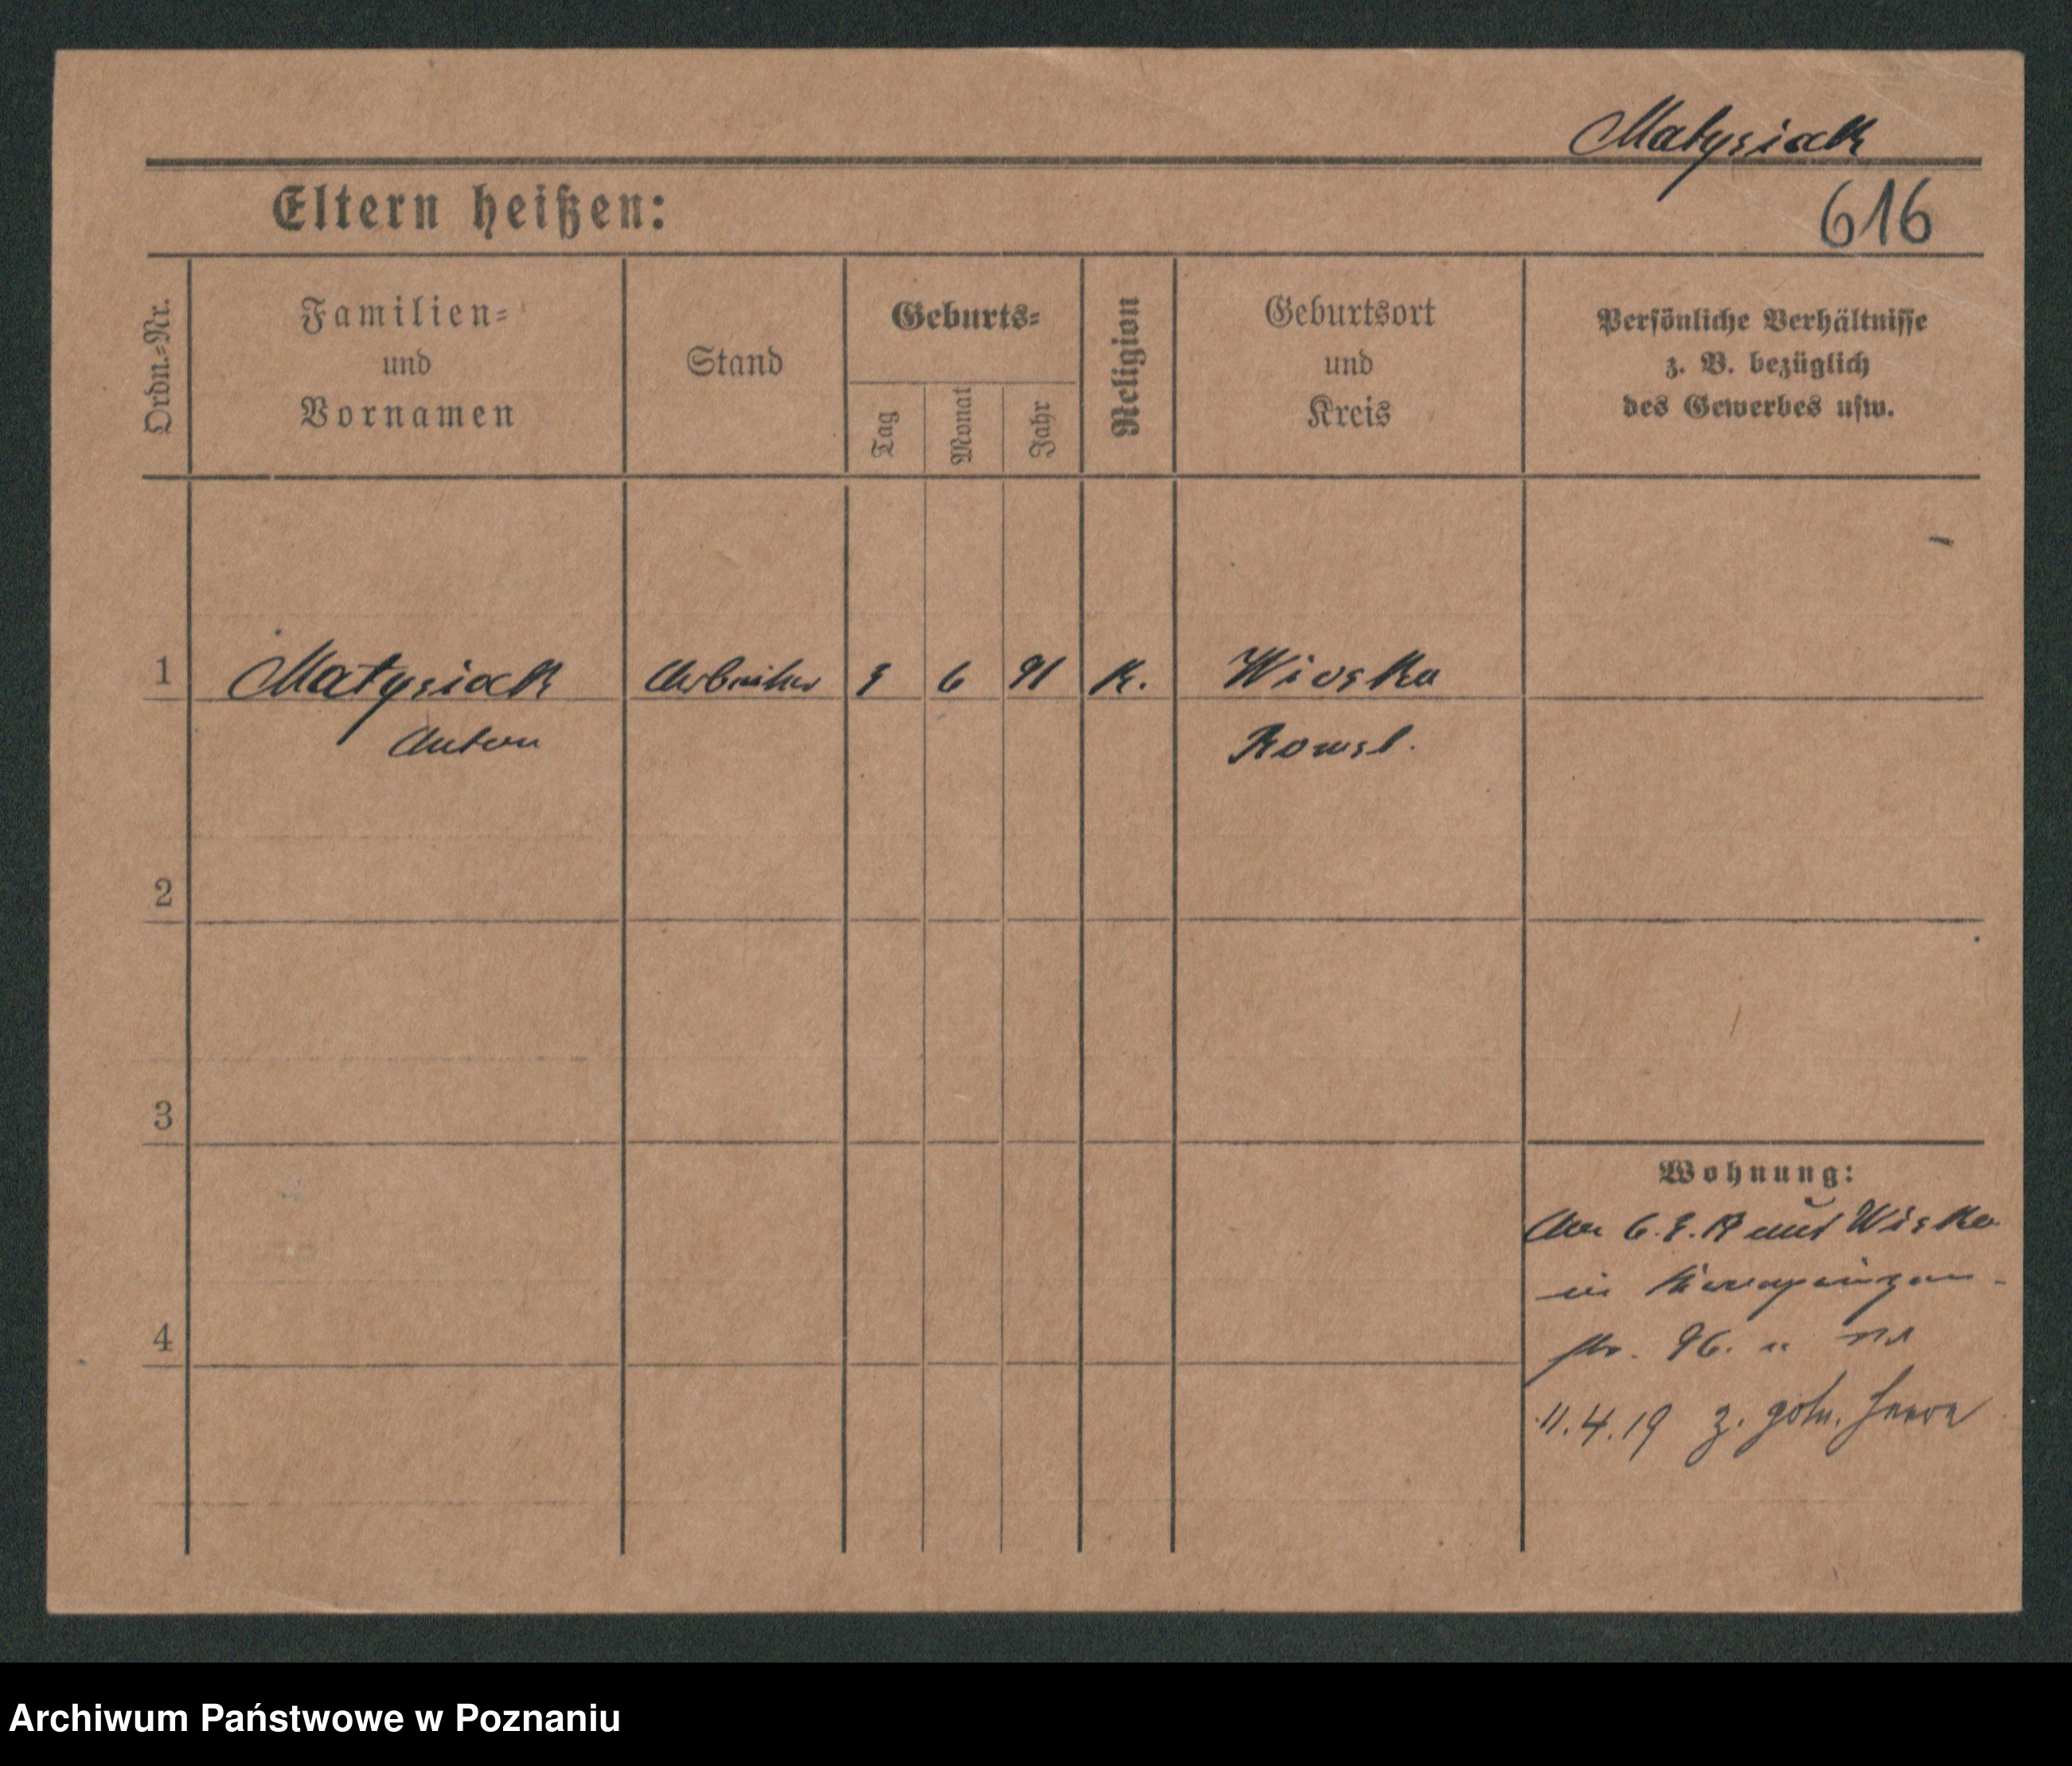 Matysiak
Eltern heißen:
616
Ordn.-Nr.
Familien-
und
Vornamen
Stand
Geburts-
Tag
Monat
Jahr
Religion
Geburtsort
und
Kreis
Persönliche Verhältnisse
z. B. bezüglich
des Gewerbes usw.
1
Matysiak
Arbeiter
6
91
K.
Wioska
Anton
2
3
Wohnung:
6.
aus Wioska
in
4
str. 96.
11.4.19 z. poln. Heere
Archiwum Państwowe w Poznaniu